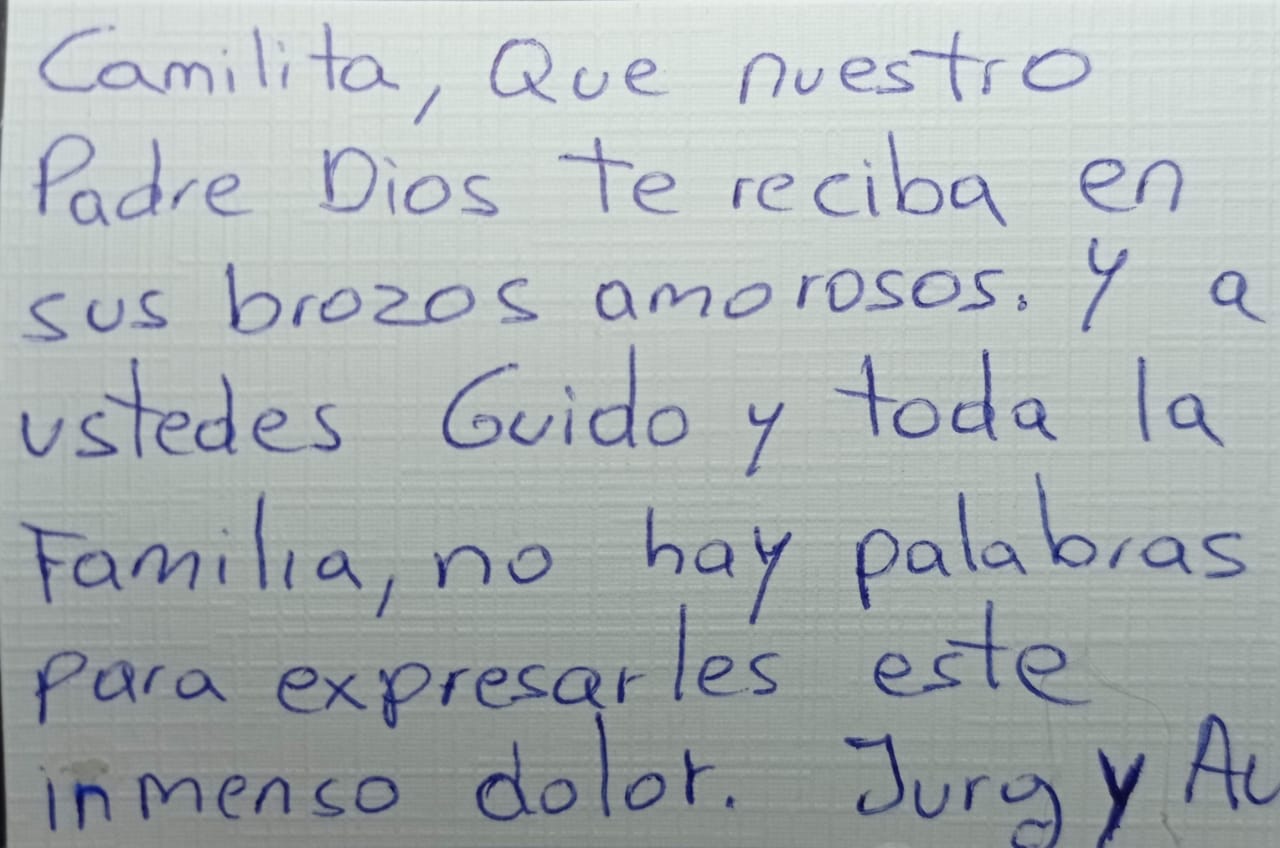 Camilita, Que nuestro
Padre Dios te reciba en
sus brozos amorosos. Y a
ustedes Guido y toda la
Familia, no hay palabras
para expresarles este
inmenso dolor. Jurg y